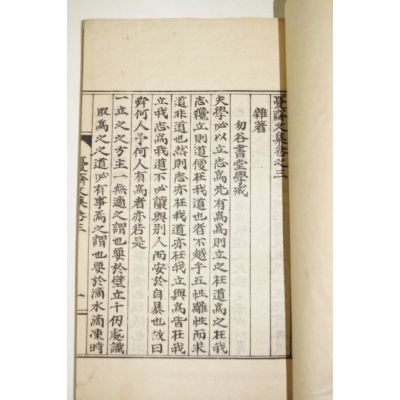 憂齋文集卷之三
雜著
勿谷書堂學戒
夫學必以立志爲先有爲爲則立之在道爲之在我
志纔立則道便在我道也者不越乎五性離性而求
道非道也然則志亦在我道亦在我立與爲皆在我
立我志爲我道不必讓與別人而安於自暴也故曰
舜何人予何人有爲者亦若是
一立之之方主一無適之謂也要於壁立千仞處識
取爲之之道必有事焉之謂也要於滴水滴凍時
憂齋文集卷三 一